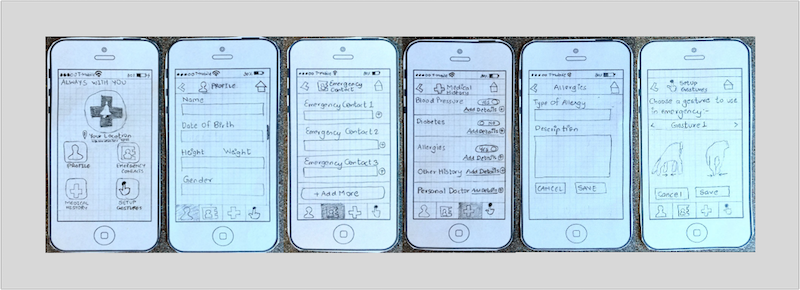 T-Mobile
ALWAYS WITH YOU
Your Location
PROFILE
EMERGENCY
CONTACTS
MEDICAL
HISTORY
SETUP
GESTURES
PROFILE
Name
Date Of Birth
Height Weight
Gender
Emergency
Contact
Emergency Contact 1
Emergency Contact 2
Emergency Contact 3
+ Add More
Medical
History
Blood Pressure
Add Details
Diabetes
Add Details
Allergies
Yes
Add Details
Other History Add Details
Personal Doctor
Allergies
Type of Allergy
Description
CANCEL SAVE
Setup
Gestures
Choose a gesture to use
in emergency:-
< Gesture 1 >
Cancel Save